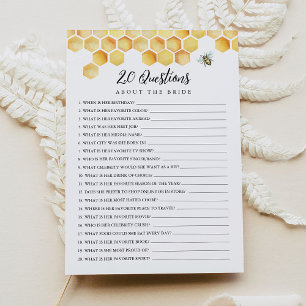 20 Questions
ABOUT THE BRIDE
1. WHEN IS HER BIRTHDAY?
2. WHAT IS HER FAVORITE COLOR?
3. WHAT IS HER FAVORITE ANIMAL?
4. WHAT WAS HER FIRST JOB?
5. WHAT IS HER MIDDLE NAME?
6. WHAT CITY WAS SHE BORN IN?
7. WHAT IS HER FAVORITE TV SHOW?
8. WHO IS HER FAVORITE SINGER/BAND?
9. WHAT CELEBRITY WOULD SHE WANT AS A BFF?
10. WHAT IS HER DRINK OF CHOICE?
11. WHAT IS HER FAVORITE SEASON OF THE YEAR?
12. DOES SHE PREFER TO SHOP ONLINE OR IN STORES?
13. WHAT IS HER MOST HATED CHORE?
14. WHERE IS HER FAVORITE PLACE TO TRAVEL?
15. WHAT IS HER FAVORITE MOVIE?
16. WHO IS HER CELEBRITY CRUSH?
17. WHAT FOOD COULD SHE EAT EVERY DAY?
18. WHAT IS HER FAVORITE BOOK?
19. WHAT IS SHE MOST PROUD OF?
20. WHAT IS HER FAVORITE SPORT?